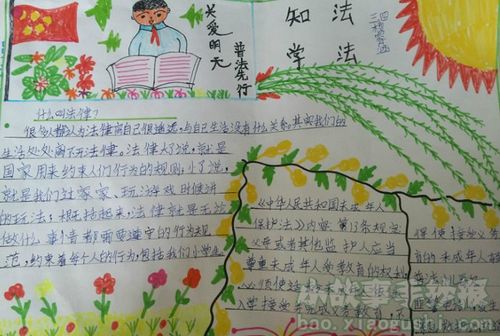 关爱明天
普法先行
知法
学法
三四
什么叫法律？
很多人都认为法律离自己很遥远，与自己生活没有什么关系。其实我们的
生活处处离不开法律。法律大了说，就是
国家用来约束人们行为的规则，小了说，
就是我们过家家、玩游戏时候讲
的玩法；概括起来，法律就是无论
做什么事情都需要遵守的行为规
范，约束着每个人的行为，包括我们小学生
《中华人民共和国未成年人
保护法》内容 第13条规定
父母或者其他监护人应当
尊重未成年人受教育的权利
必须使适
入学接受
保使接受义务
的未成年人
hao.xiaogushi.com